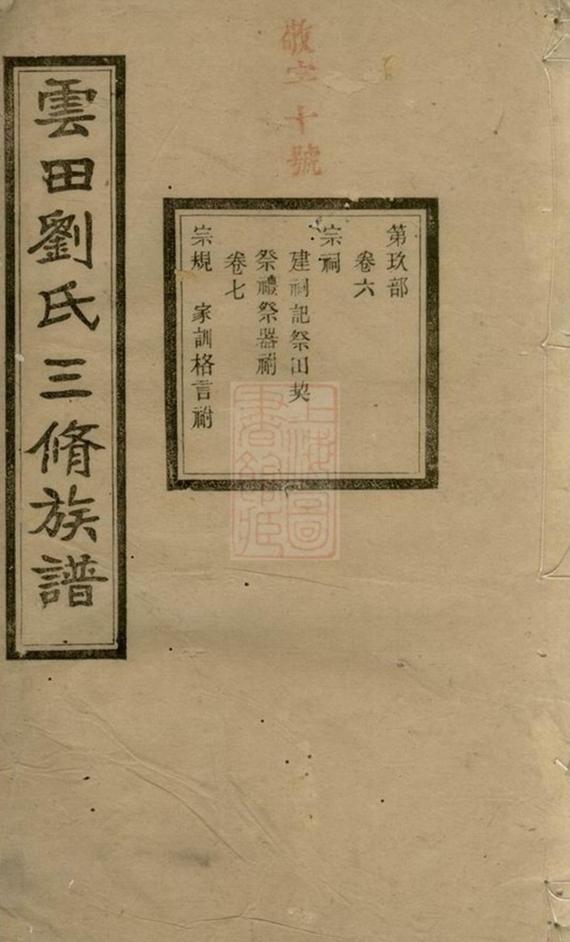 雲田劉氏三脩族譜
敬字十號
第玖部
卷六
宗祠
建祠記祭田契
祭禮祭器附
卷七
宗規 家訓格言附
上海圖
書館藏